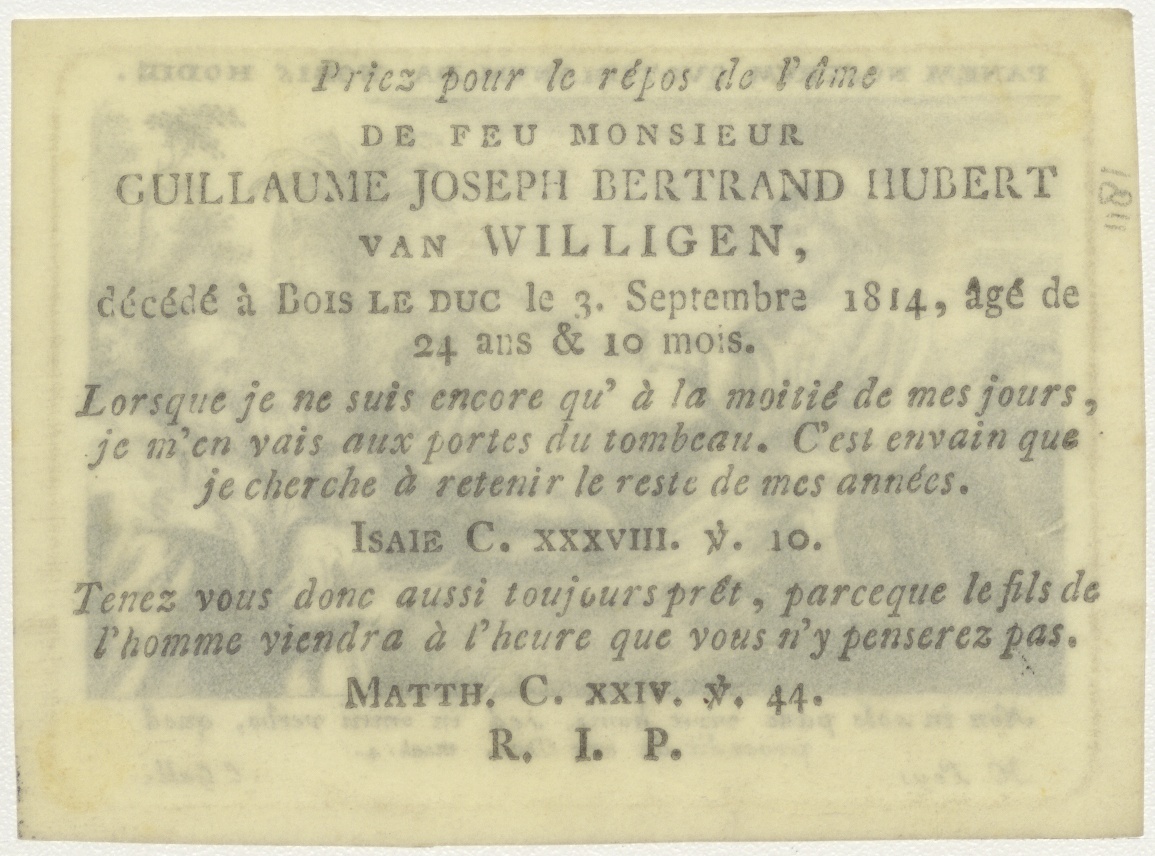 Priez pour le répos de l'âme
DE FEU MONSIEUR
GUILLAUME JOSEPH BERTRAND HUBERT
VAN WILLIGEN,
décédé à BOIS LE DUC le 3. Septembre 1814, âgé de
24 ans & 10 mois.
Lorsque je ne suis encore qu' à la moitié de mes jours,
je m'en vais aux portes du tombeau. C'est envain que
je cherche à retenir le reste de mes années.
ISAIE C. XXXVIII. ℣. 10.
Tenez vous donc aussi toujours prêt, parceque le fils de
l'homme viendra à l'heure que vous n'y penserez pas.
MATTH. C. XXIV. ℣. 44.
R. I. P.